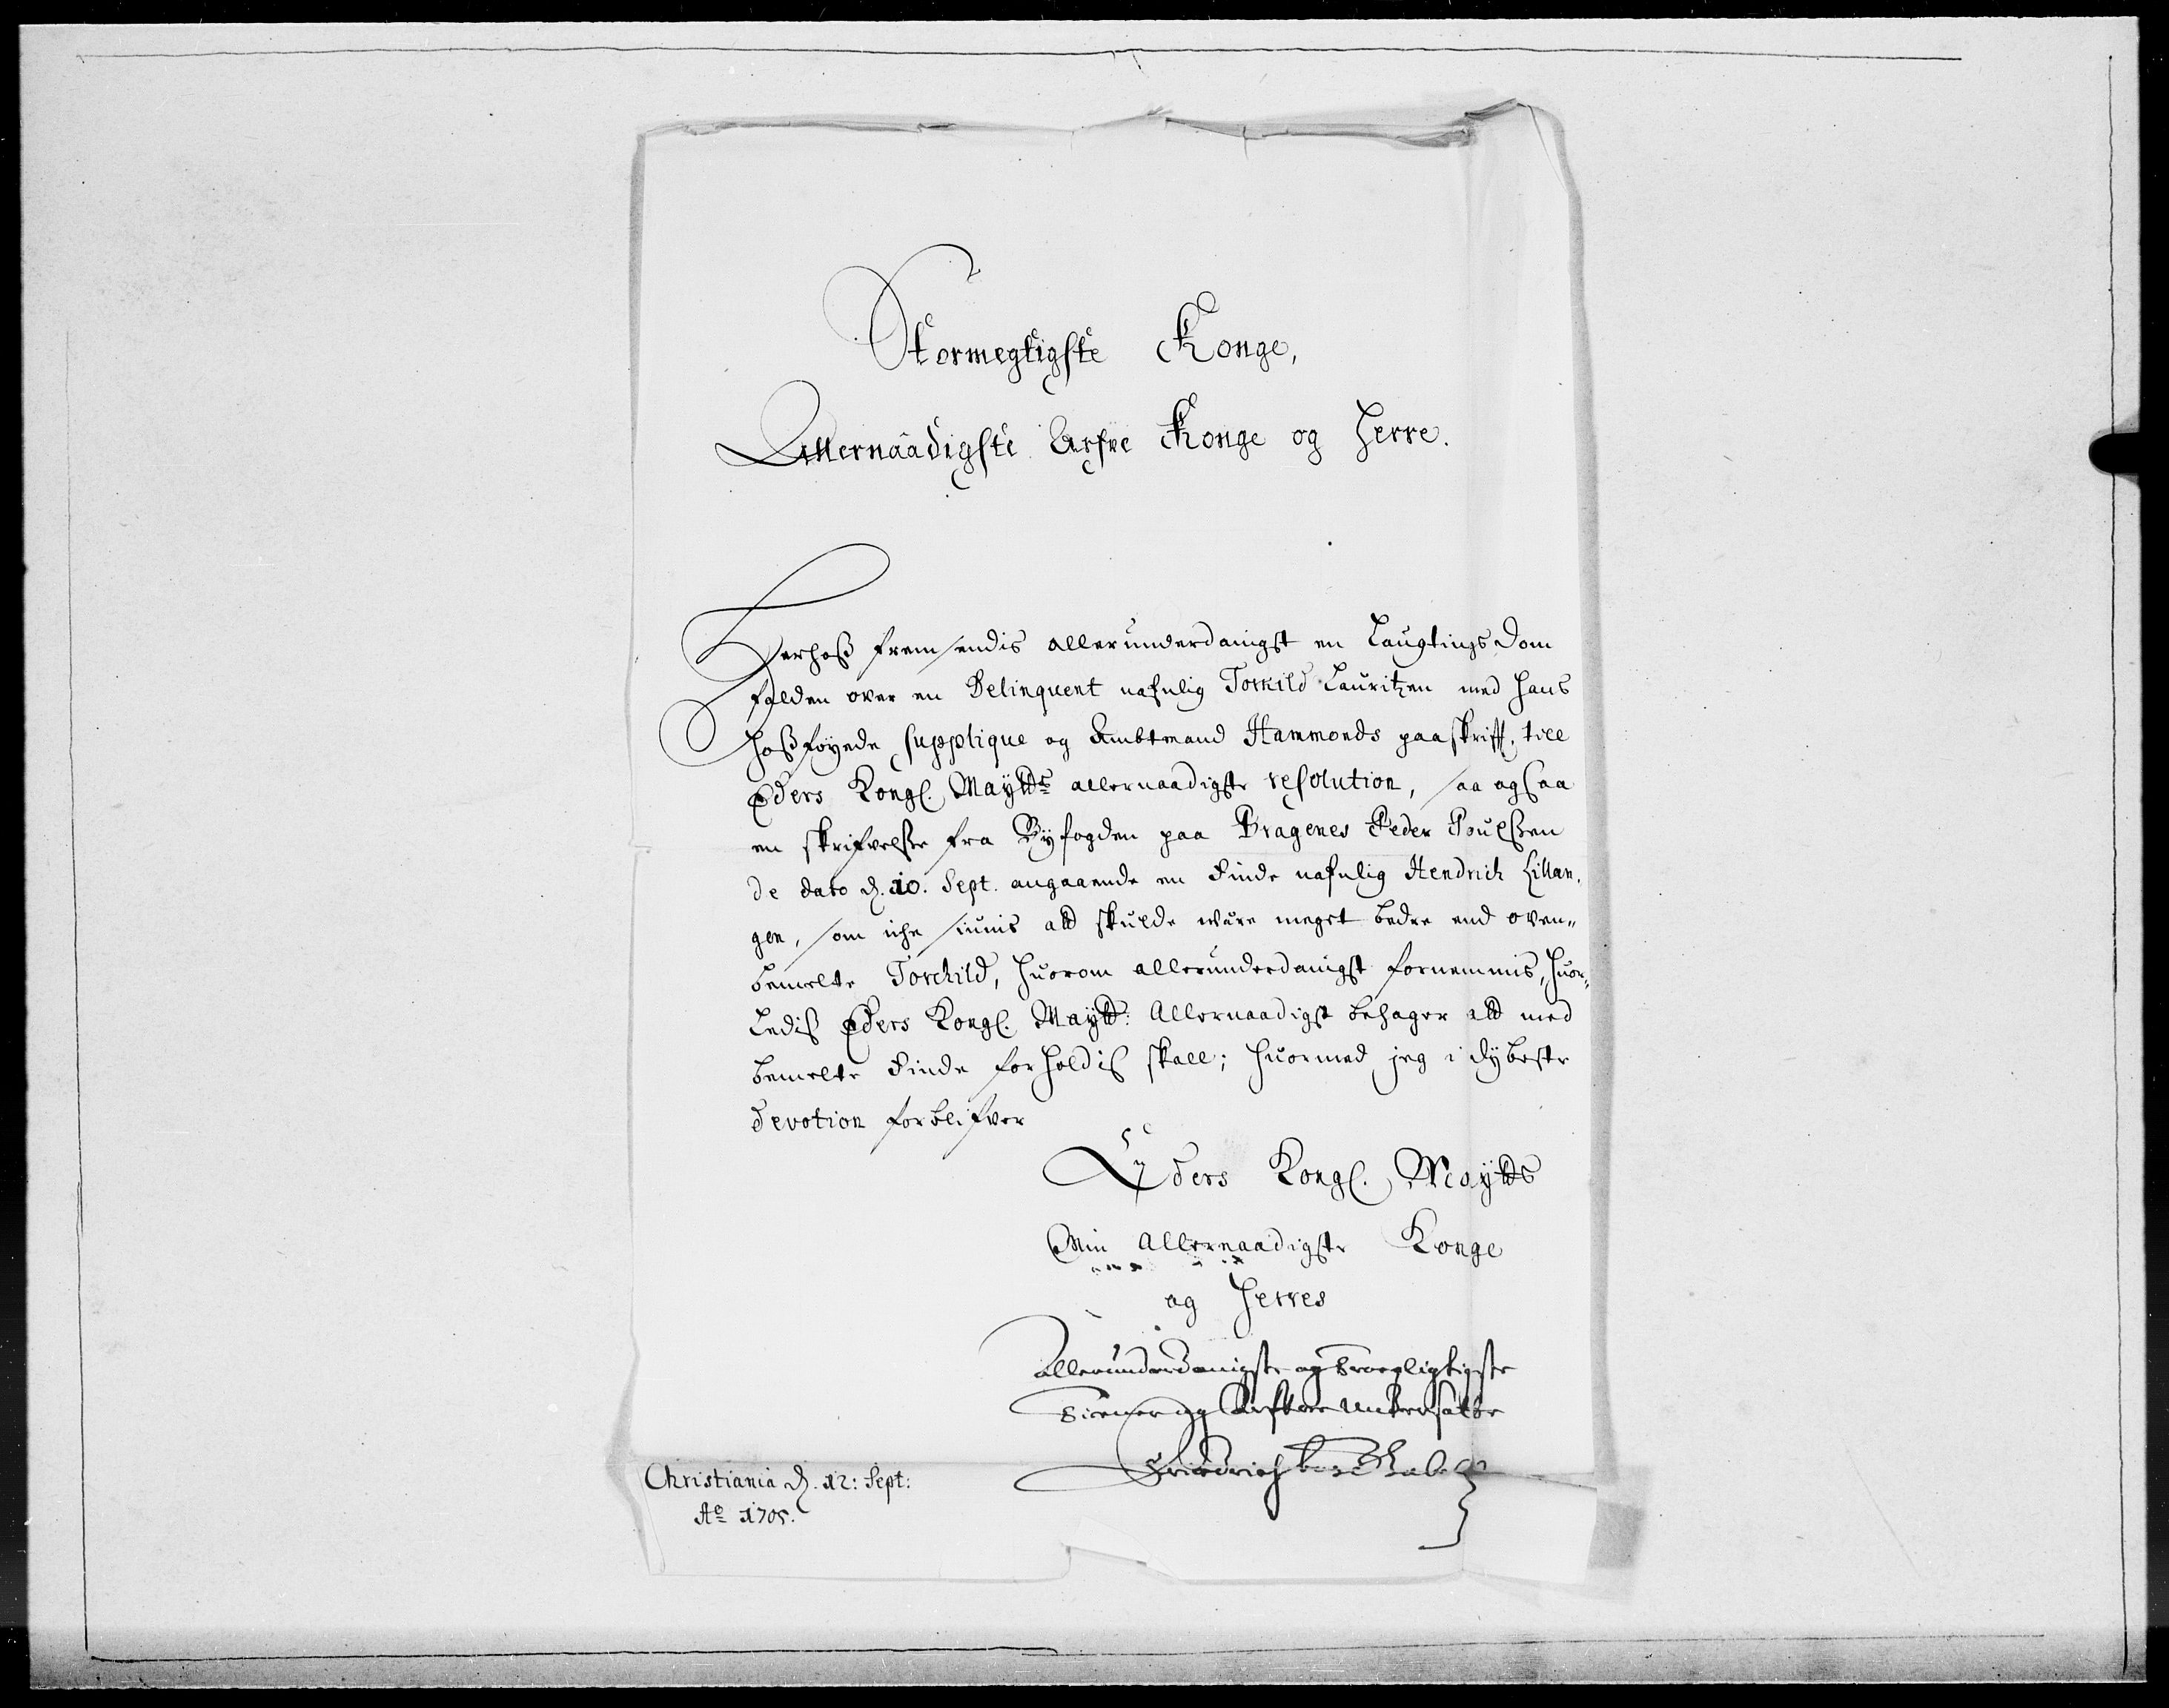 Stormegtigste Konge,
Allernaadigste Arfve Konge og Herre.
Herhoß fremsendis allerunderdanigst en Laugtings dom
falden over en Delinquent nafnlig Torkild Lauritzen med hans
hoßføyede supplique og Ambtmand Hammonds paaskrifft, till
Eders Kongl. Maytts allernaadigste resolution, saa og saa
en skrifvelsse fra Byfogden paa Bragenes Peder Poulssen
de dato d. 10. Sept. angaaende en Finde nafnlig Hendrich Lillan,
gen, som iche siunis att skulde være meget bedre end oven„
bemelte Torchild, huorom allerunderdanigst fornemmis, huor„
Ledis Eders Kongl. Maytt: Allernaadigst behager att med
bemelte Finde forholdis skall; huormed jeg i dybeste
devotion forblifver
Eders Kongl. Maytts
Min Allernaadigste Konge
og Herres
allerunderdanigste og troepligtigste
tiener og Arfvee Undersatte
Friedrich Gabel
Christiania d. 12: Sept:
Ao 1705.